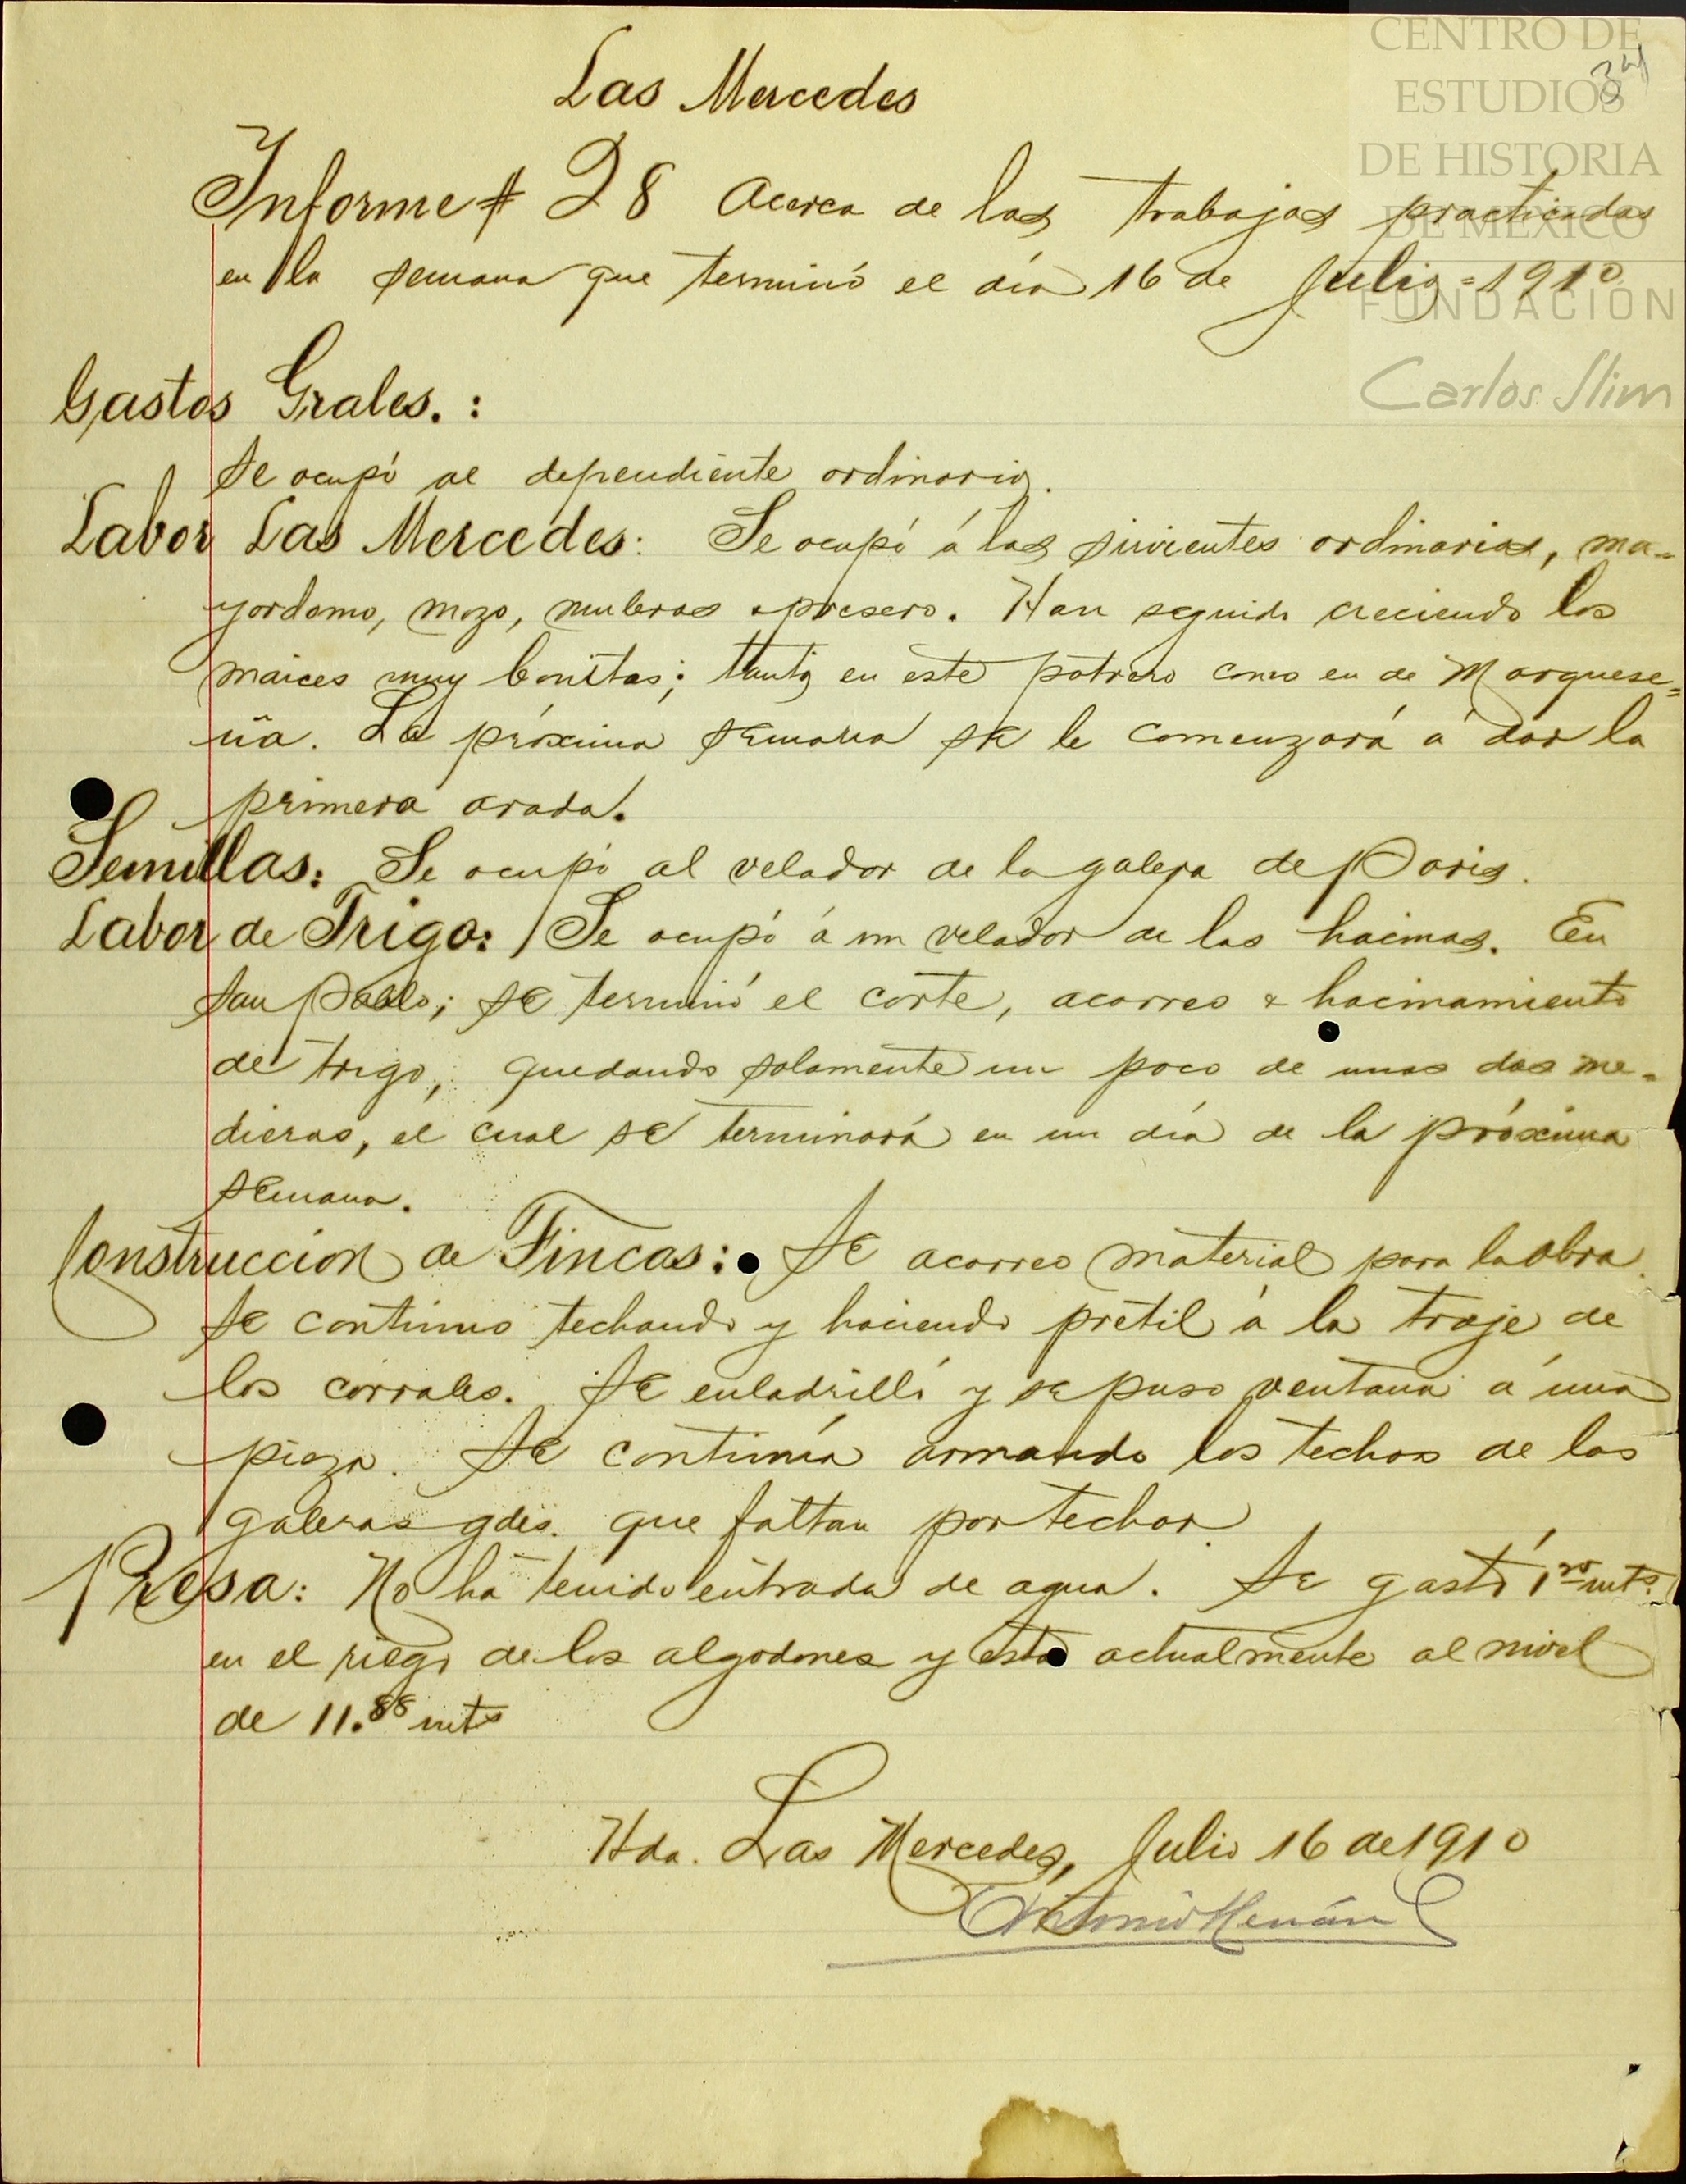 CENTRO DE
ESTUDIOS
DE HISTORIA
DE MÉXICO
FUNDACIÓN
Carlos Slim
34
Las Mercedes
Informe # 28 Acerca de los trabajos practicados
en la semana que terminó el día 16 de Julio = 1910
Gastos Grales. :
Se ocupó al dependiente ordinario.
Labor Las Mercedes: Se ocupó á los sirvientes ordinarios, ma-
yordomo, mozo, muleros & presero. Han seguido creciendo los
maices muy bonitos; tanto en este potrero como en de Marquese=
ña. La próxima semana se le comenzará á dar la
primera arada.
Semillas: Se ocupó al velador de la galera de Paris.
Labor de Trigo: Se ocupó á un velador de las hacinas. En
San Pablo; se terminó el corte, acarreo & hacinamiento
de trigo, quedando solamente un poco de unos dos me-
dieros, el cual se terminará en un día de la próxima
semana.
Construccion de Fincas: Se acarreo material para la obra.
Se continuo techando y haciendo pretil á la troje de
los corrales. Se enladrilló y se puso ventana á una
pieza. Se continúa armando los techos de las
galeras gdes. que faltan por techar.
Presa: No ha tenido entrada de agua. Se gastó mts.
en el riego de los algodones y está actualmente al nivel
de 11.88 mts
Hda. Las Mercedes, Julio 16 de 1910
Antonio